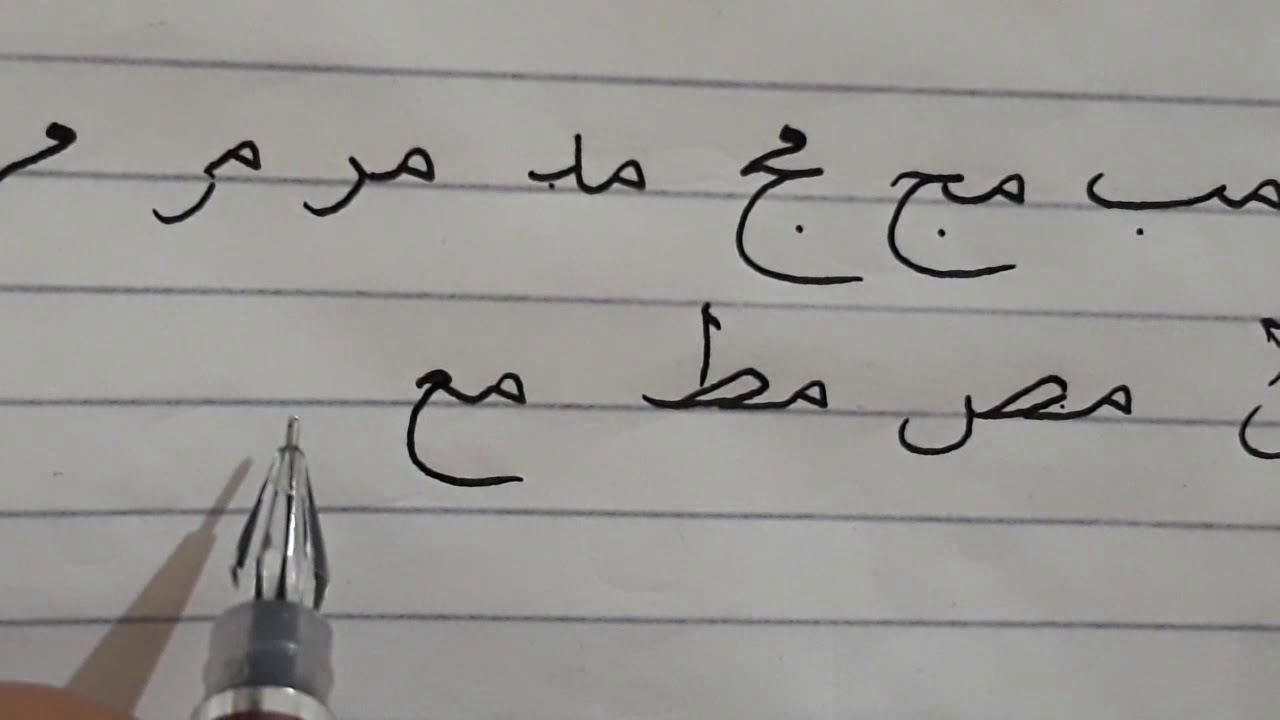 مب مج مج مد مر مر
مص مط مع